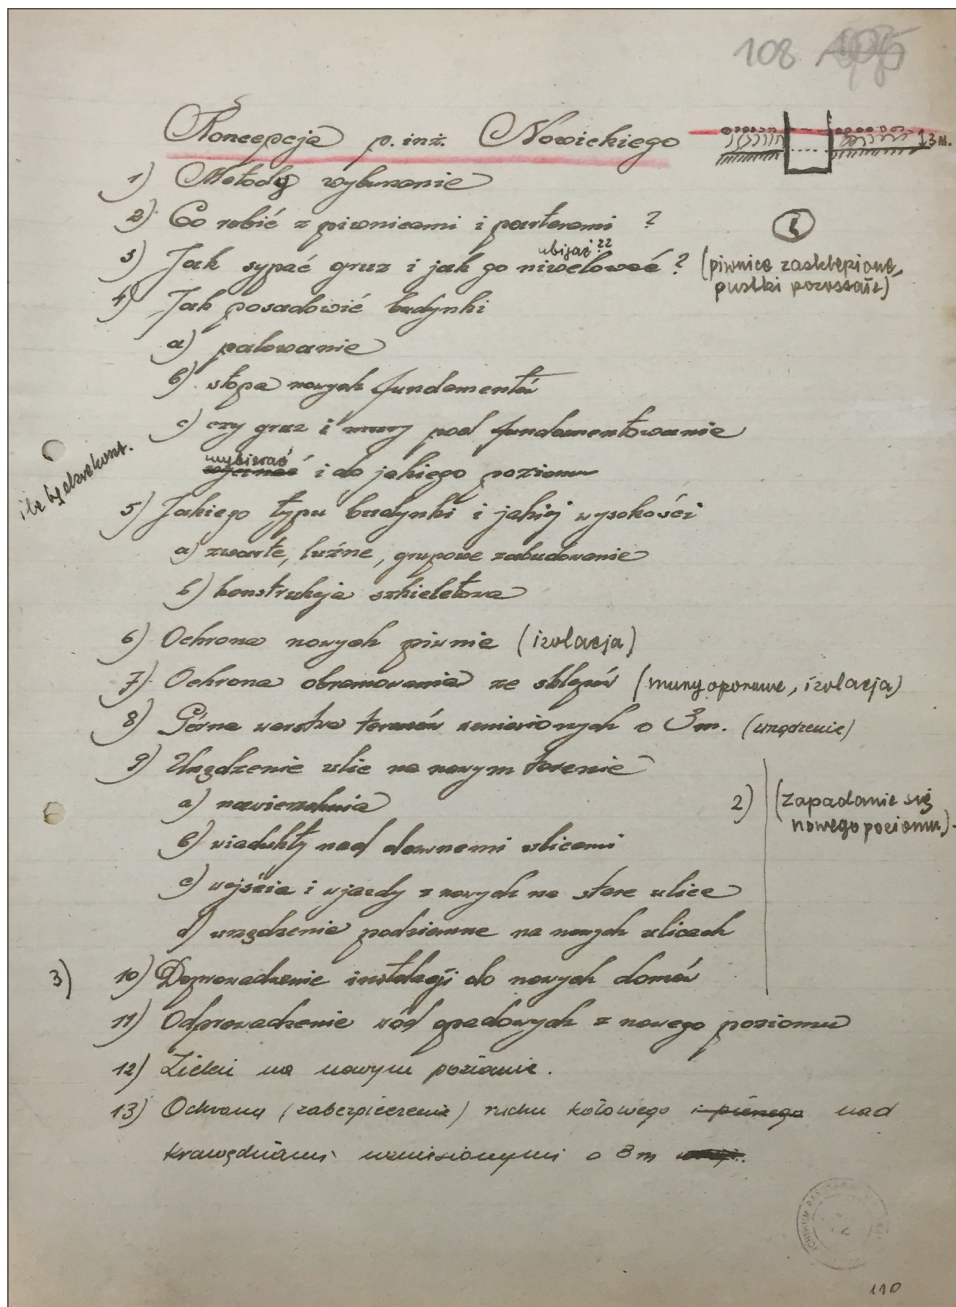 108
Koncepcja p. inż. Nowickiego
3 m.
1) Metody wykonanie
2) Co robić z piwnicami i parterami ?
ubijać ??
3) Jak sypać gruz i jak go niwelować ? (piwnice zasklepione,
pustki pozostałe)
4) Jak posadowić budynki
a) palowanie
b) stopa nowych fundamentów
c) czy gruz i mury pod fundamentowanie
wybierać
i do jakiego poziomu
5) Jakiego typu budynki i jakiej wysokości
a) zwarte, luźne, grupowe zabudowanie
b) konstrukcja szkieletowa
6) Ochrona nowych piwnic (izolacja)
7) Ochrona obramowania ze sklepów (mury oporowe, izolacja)
8) Górna warstwa terenów wzniesionych o 3 m. (urządzenie)
9) Urządzenie ulic na nowym terenie
a) nawierzchnia
2) (zapadanie się
nowego poziomu)
b) viadukty nad dawnemi ulicami
c) wejścia i wjazdy z nowych na stare ulice
d) urządzenie podziemne na nowych ulicach
3) 10) Doprowadzenie instalacji do nowych domów
11) Odprowadzenie wód opadowych z nowego poziomu
12) Zieleń na nowym poziomie.
13) Ochrona (zabezpieczenie) ruchu kołowego i pieszego nad
krawędziami wzniesionymi o 3 m
110